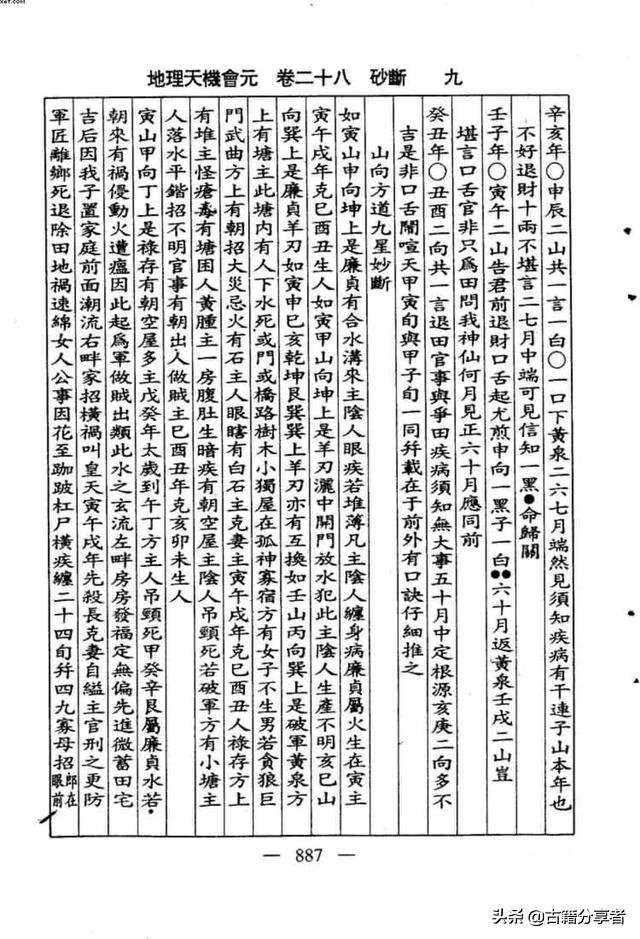 xet.com
地理天機會元　卷二十八　砂斷　九
辛亥年〇申辰二山共一言一白〇一口下黃泉二六七月端然見須知疾病有干連子山本年也
不好退財十兩不堪言二七月中端可見信知一黑●命歸關
壬子年〇寅午二山告君前退財口舌起尤煎申向一黑子一白●●六十月返黃泉壬戌二山豈
堪言口舌官非只爲田問我神仙何月見正六十月應同前
癸丑年〇丑酉二向共一言退田官事與爭田疾病須知無大事五十月中定根源亥庚二向多不
吉是非口舌鬧喧天甲寅旬與甲子旬一同幷載在于前外有口訣仔細推之
山向方道九星妙斷
如寅山申向坤上是廉貞有合水溝來主陰人眼疾若堆薄凡主陰人纏身病廉貞屬火生在寅主
寅午戌年克巳酉丑生人如寅甲山向坤上是羊刃灑中開門放水犯此主陰人生產不明亥巳山
向巽上是廉貞羊刃如寅申巳亥乾坤艮巽巽上羊刃亦有互換如壬山丙向巽上是破軍黃泉方
上有塘主此塘內有人下水死或門或橋路樹木小獨屋在孤神寡宿方有女子不生男若貪狼巨
門武曲方上有朝招大災忌火有石主人眼瞎有白石主克妻主寅午戌年克巳酉丑人祿存方上
有堆主怪瘡毒有塘困人黃腫主一房腹肚生暗疾有朝空屋主陰人吊頸死若破軍方有小塘主
人落水平鍇招不明官事有朝出入做賊主巳酉丑年克亥卯未生人
寅山甲向丁上是祿存有朝空屋多主戊癸年太歲到午丁方主人吊頸死甲癸辛艮屬廉貞水若
朝來有禍侵動火遭瘟因此起爲軍做賊出類此水之玄流左畔房房發福定無偏先進微蓄田宅
吉后因我子置家庭前面潮流右畔家招橫禍叫皇天寅午戌年先殺長克妻自縊主官刑之更防
軍匠離鄉死退除田地禍速綿女人公事因花至跏跛杠尸橫疾纏二十四旬幷四九寡母招郎在眼前
— 887 —
头条 @古籍分享者